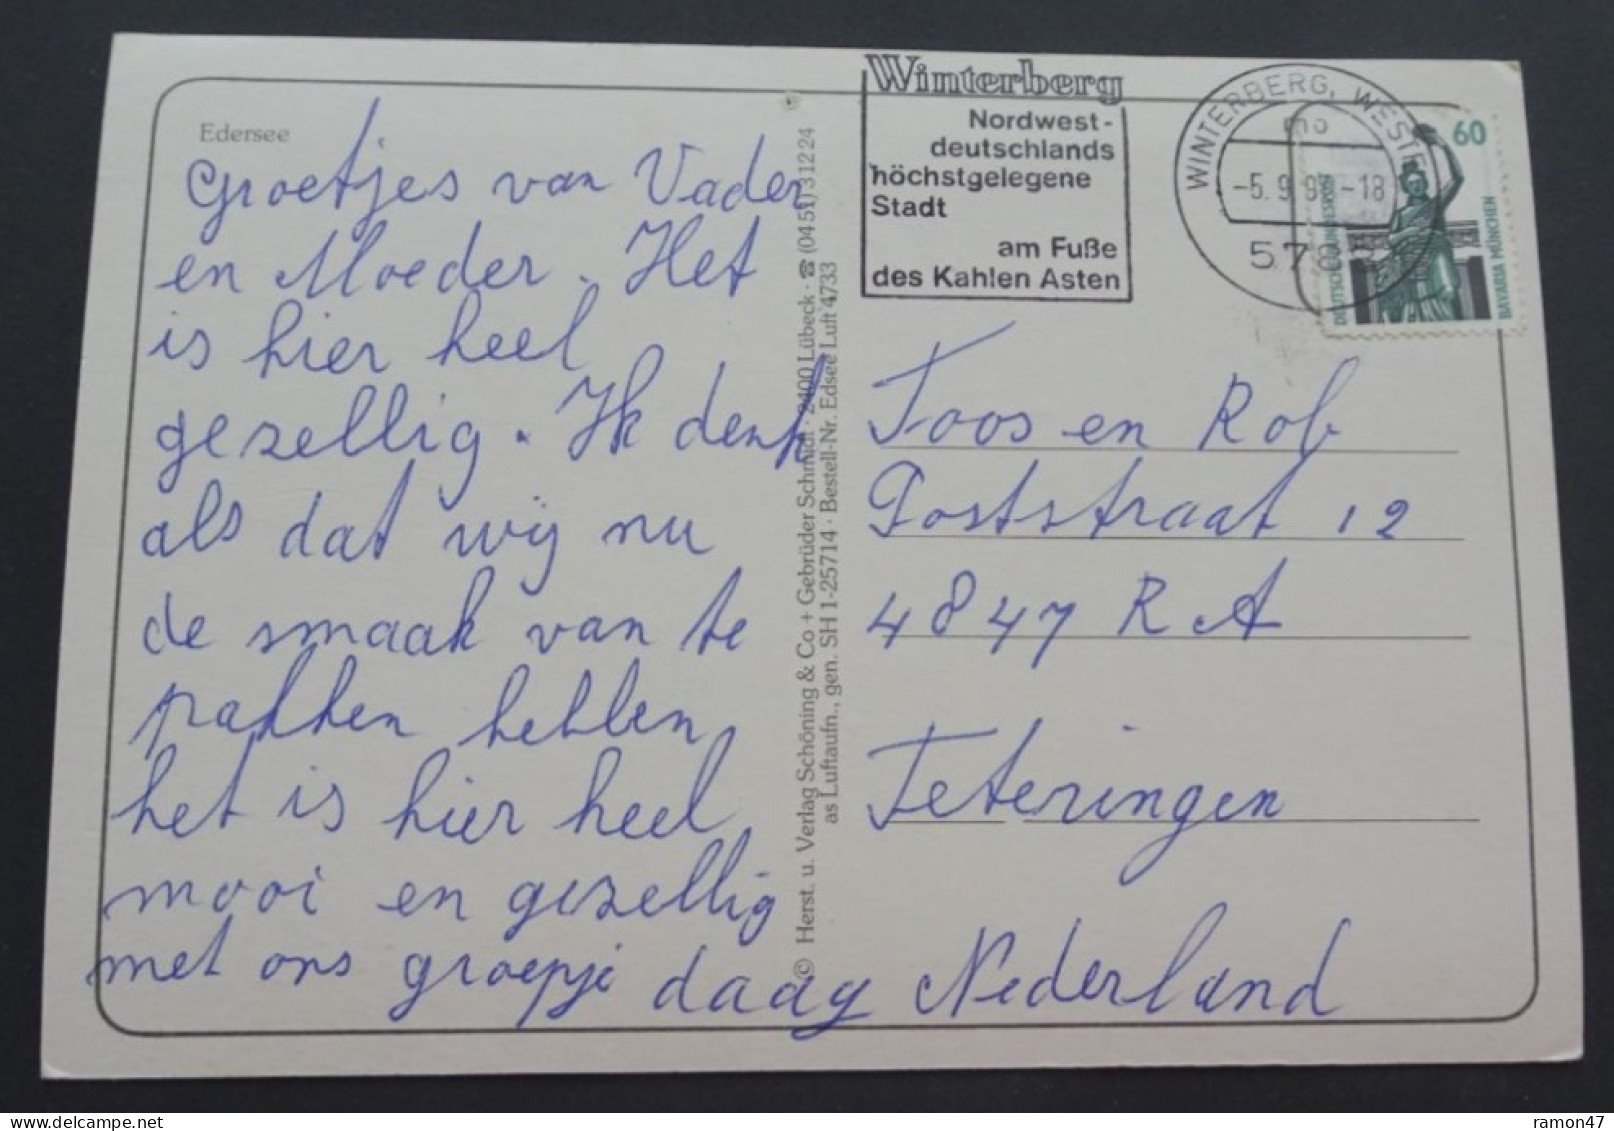 Edersee
Groetjes van Vader
en Moeder. Het
is hier heel
gezellig. Ik denk
als dat wij nu
de smaak van te
pakken hebben
het is hier heel
mooi en gezellig
met ons groepje daag
© Herst. u. Verlag Schöning & Co + Gebrüder Schmidt · 2400 Lübeck · ☎ (0451) 31224
as Luftaufn., gen. SH 1-25714 · Bestell-Nr. Edsee Luft 4733
Winterberg
Nordwest-
deutschlands
höchstgelegene
Stadt
am Fuße
des Kahlen Asten
WINTERBERG, WESTF
-5. 9. -18
60
DEUTSCHE BUNDESPOST
BAVARIA MÜNCHEN
Toos en Rob
Poststraat 12
4847 RA
Teteringen
Nederland
ramon47